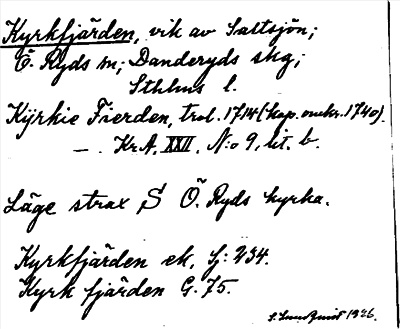 Kyrkfjärden, vik av Saltsjön;
Ö. Ryds sn; Danderyds skg;
Sthlms l.
Kÿrkie Fierden, trol. 1714 (kop. omkr. 1740).
— . Kr.A. XXII. N:o 9, lit. b.
Läge strax S Ö. Ryds kyrka.
Kyrkfjärden ek. Sj: 234.
Kyrk fjärden G. 75.
S. Lundqvist 1926.